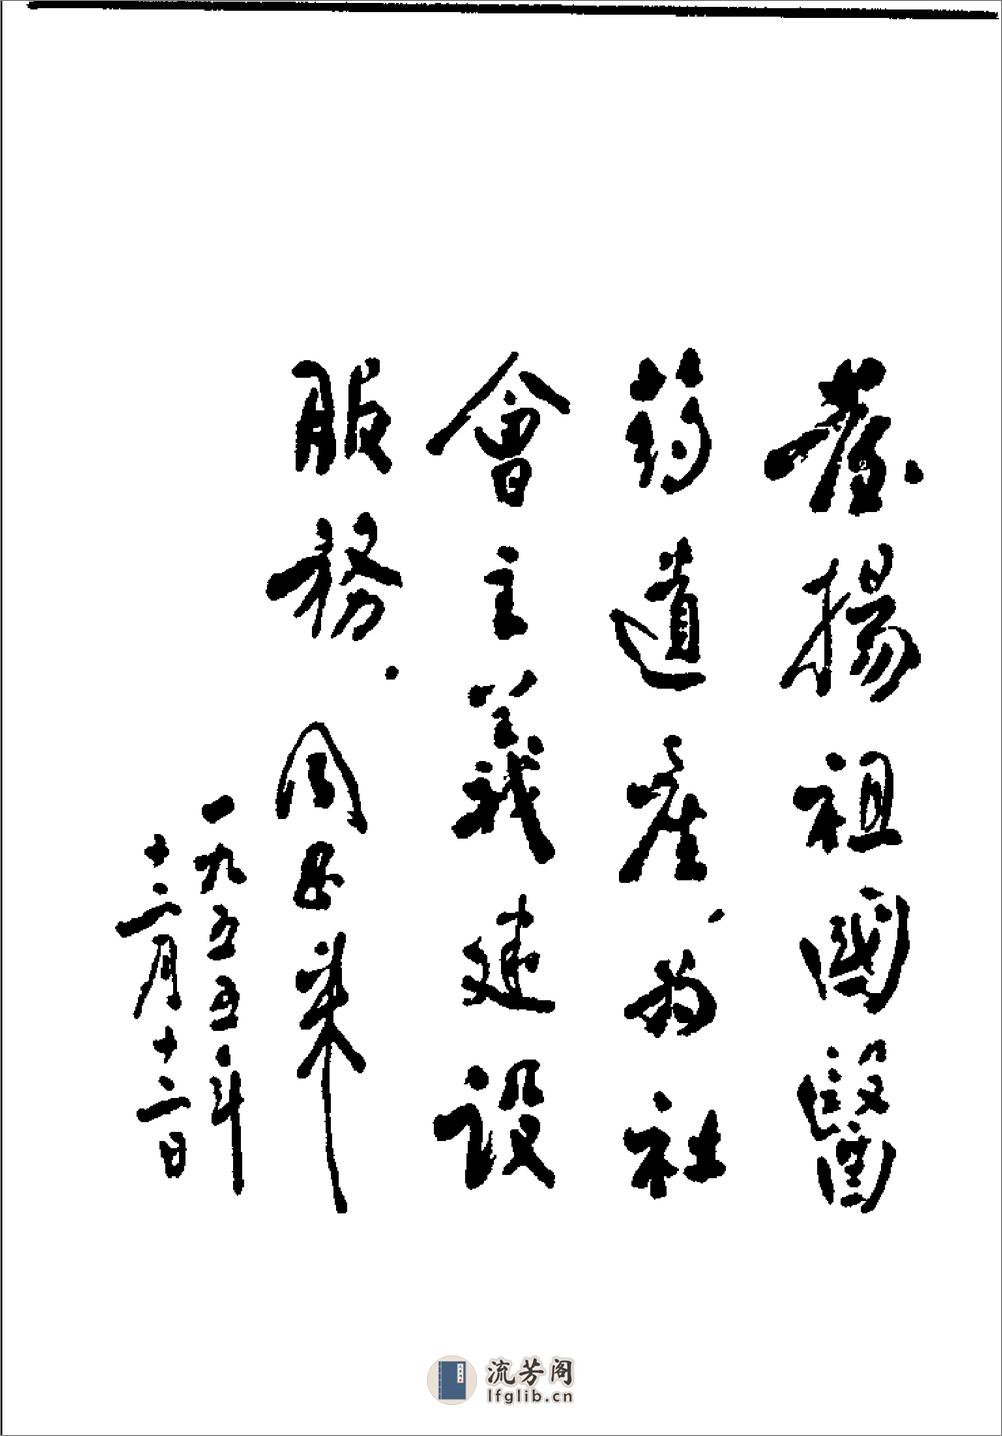 發揚祖國醫
药遺產,為社
會主義建設
服務。周恩来
一九五五年
十二月十二日
流芳阁
lfglib.cn